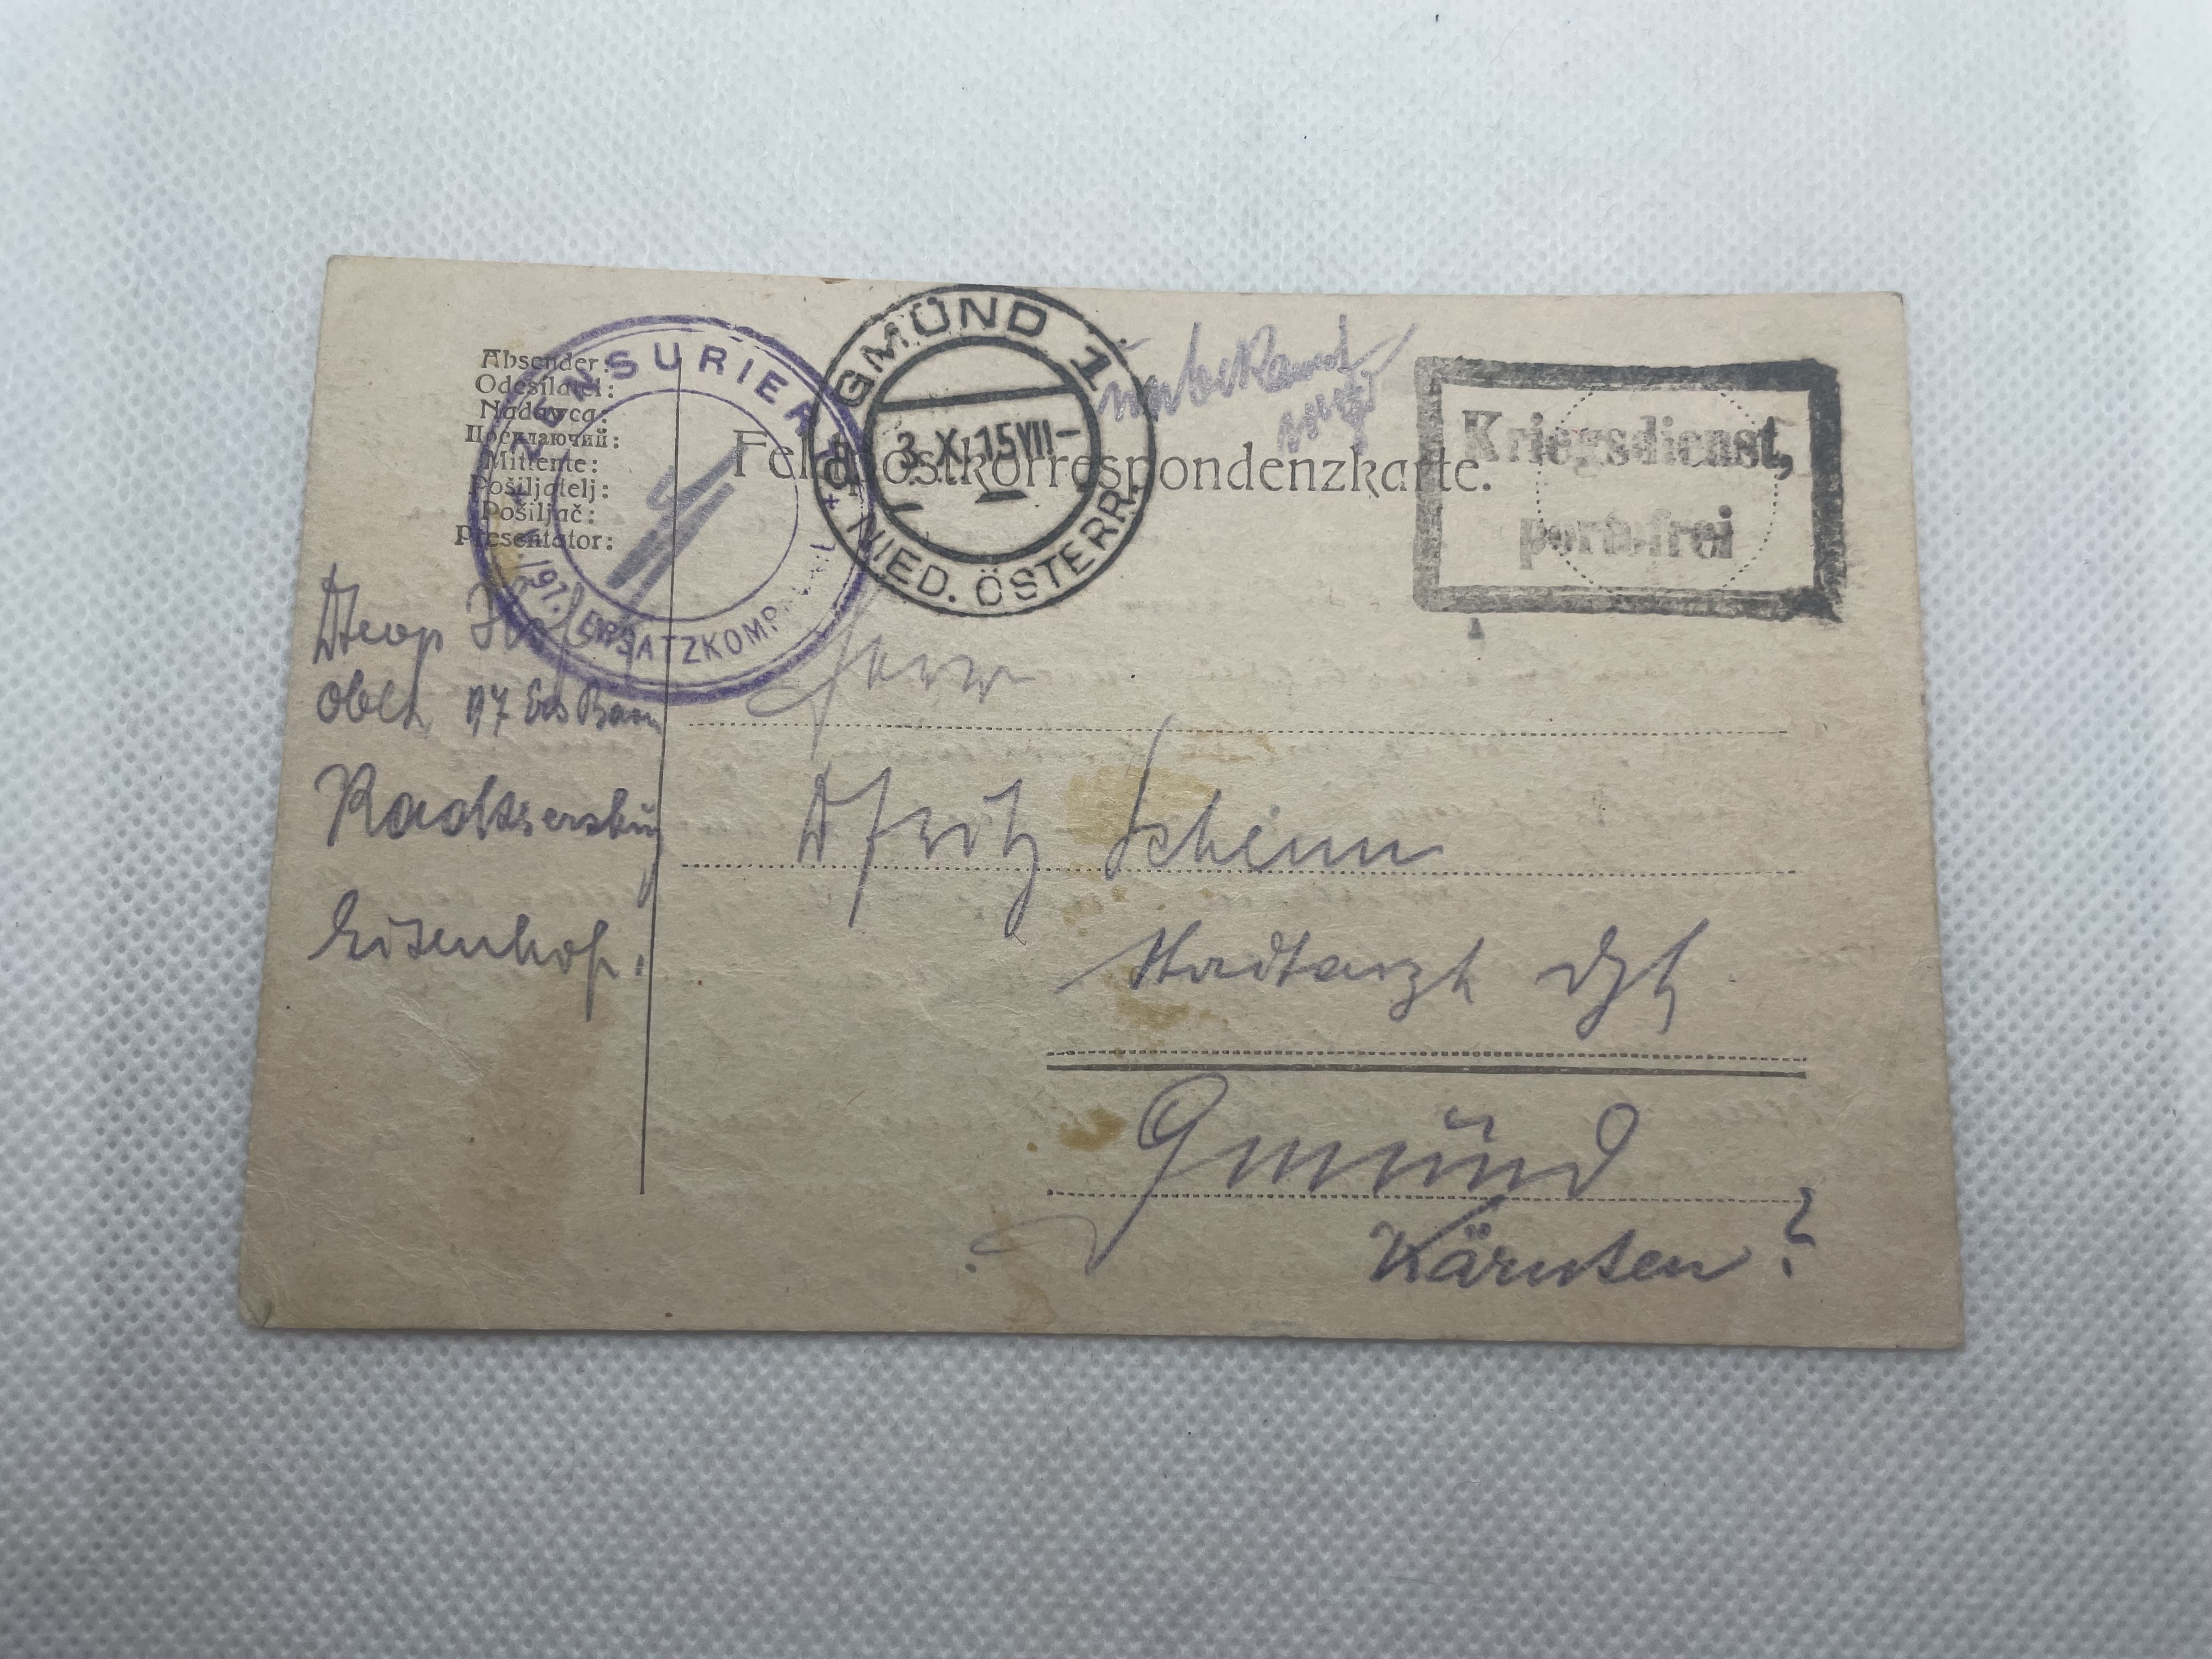 Absender:
Odesílatel:
Nadawca:
Посилаючий:
Mittente:
Pošiljatelj:
Pošiljač:
Presentator:
ZENSURIERT
197. ERSATZKOMP
GMÜND 1
3. X. 15 VII-
* NIED. ÖSTERR. *
unbekannt
Feldpostkorrespondenzkarte.
Kriegsdienst,
portofrei
97 Ers Baon
Radkersburg
Eisenhof.
Herr
D Fritz Scheinn
Stadtarzt
Gmünd
Kärnten ?